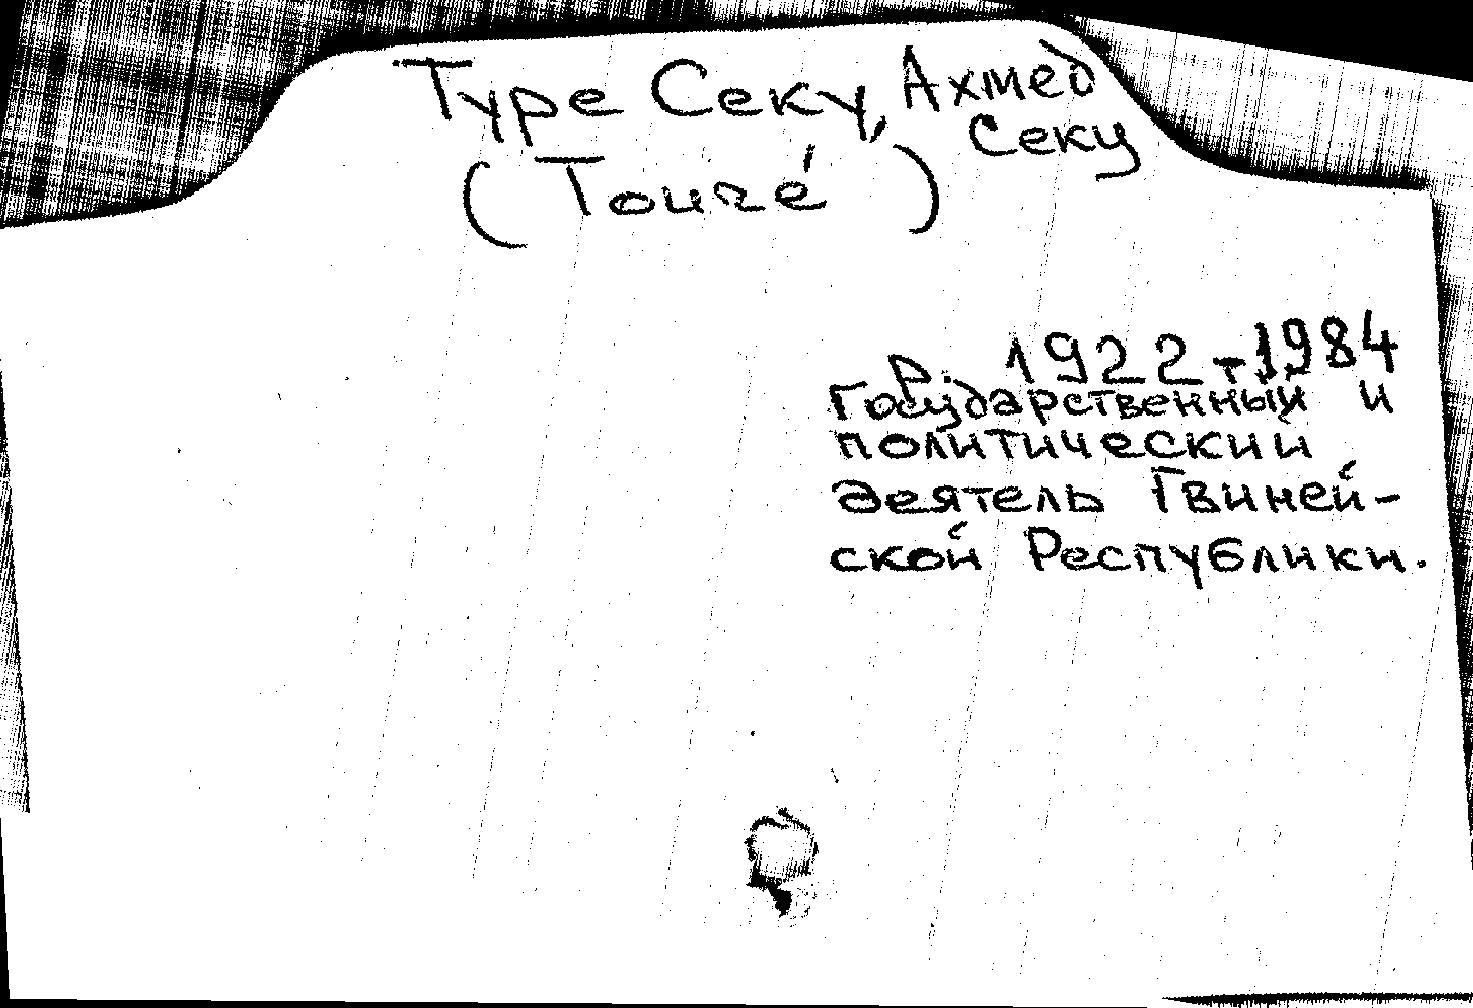 Туре Секу, Ахмед
Секу
(Touré)
р. 1922-1984
Государственный и
политический
деятель Гвиней-
ской Республики.